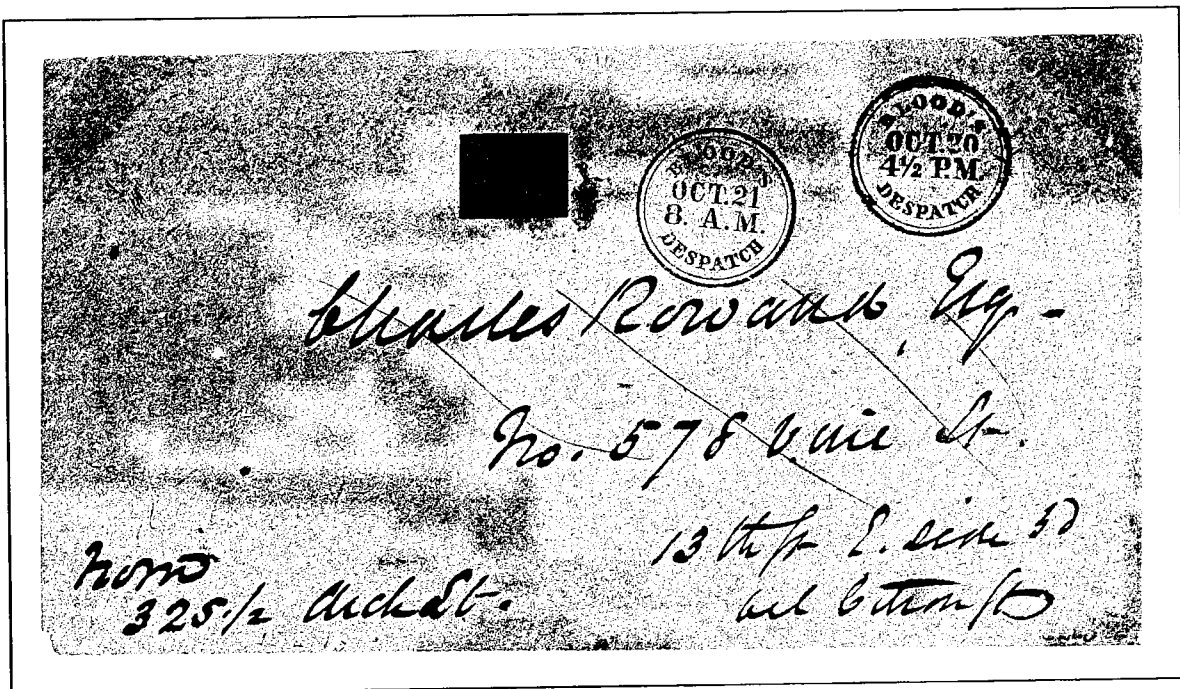 BLOOD'S
OCT. 20
4½ P.M.
DESPATCH
BLOOD'S
OCT. 21
8. A.M.
DESPATCH
Charles Rowand, Esq -
No. 578 Vine St.
13th St E. side 3d
bel Citron St
now
325 1/2 Arch St.